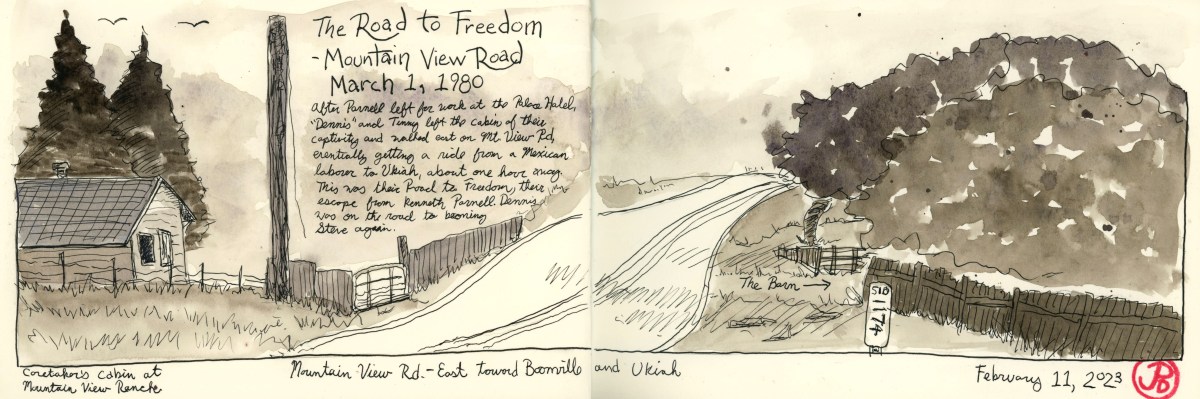 The Road to Freedom
- Mountain View Road
March 1, 1980
After Parnell left for work at the Palace Hotel,
"Dennis" and Timmy left the cabin of their
captivity and walked east on Mt. View Rd,
eventually getting a ride from a Mexican
laborer to Ukiah, about one hour away.
This was their Road to Freedom, their
escape from Kenneth Parnell. Dennis
was on the road to becoming
Steve again.
The Barn →
STD
1174
Caretaker's Cabin at
Mountain View Ranch
Mountain View Rd. - East Toward Boonville and Ukiah
February 11, 2023